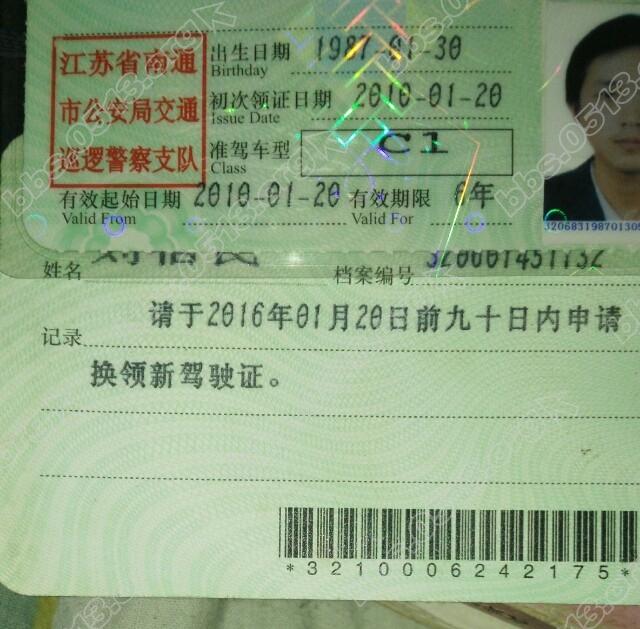 江苏省南通
市公安局交通
巡逻警察支队
出生日期 1987-01-30
Birthday
初次领证日期 2010-01-20
Issue Date
准驾车型 C1
Class
有效起始日期 2010-01-20 有效期限 6年
Valid From Valid For
姓名 档案编号
记录 请于2016年01月20日前九十日内申请
换领新驾驶证。
*3210006242175*
bbs.0513.org